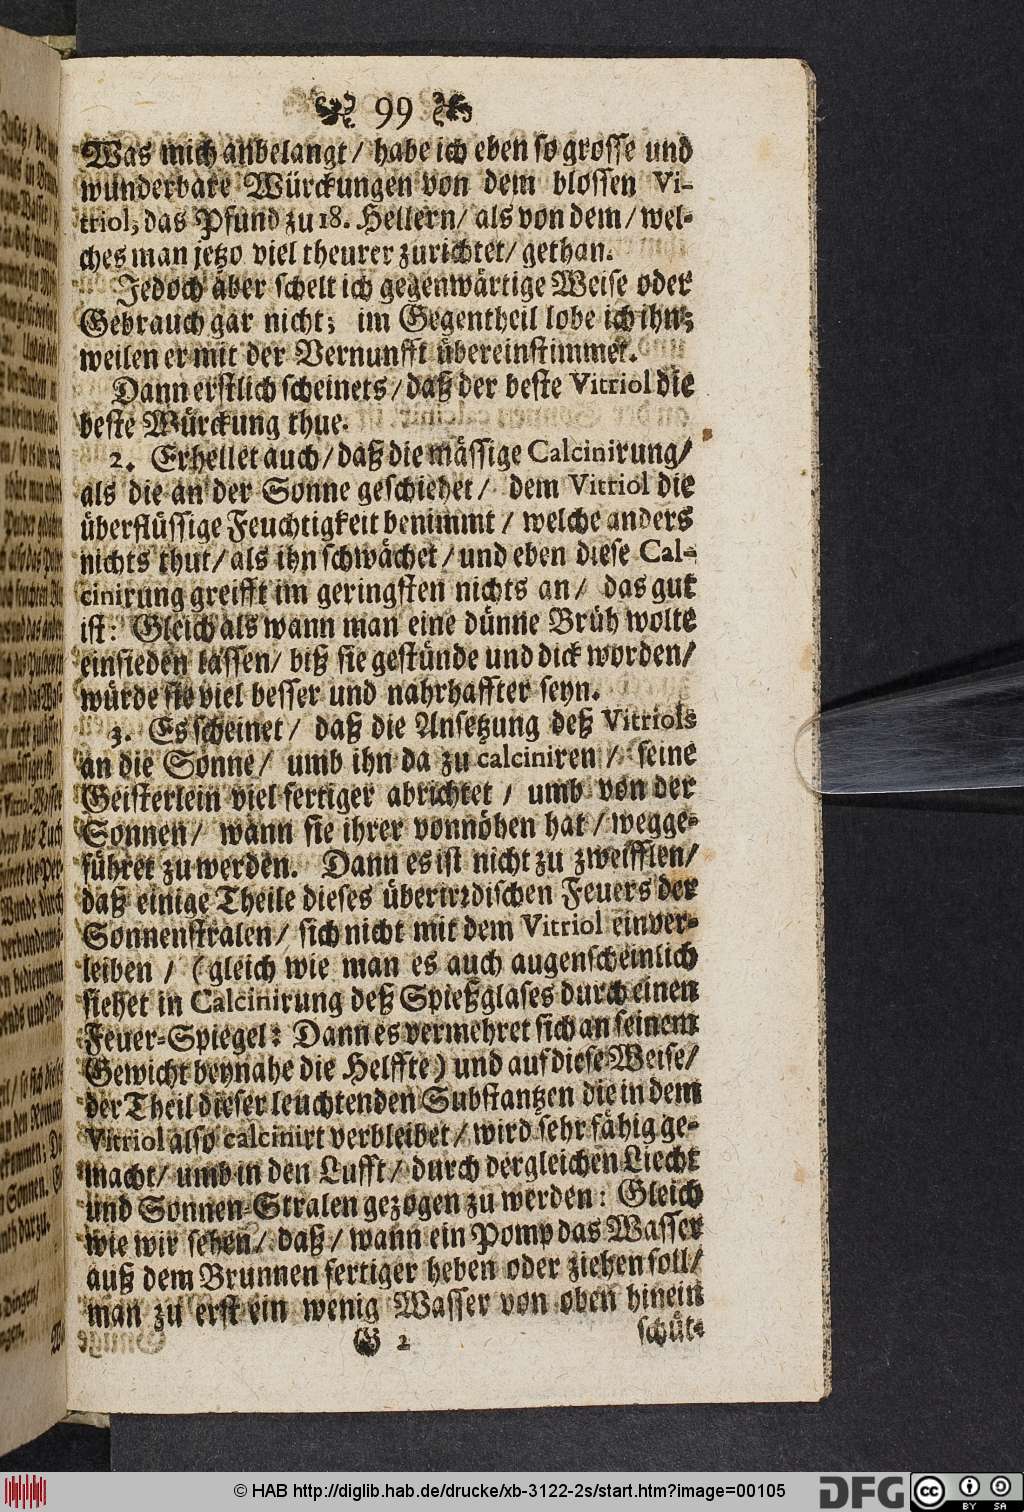 99
Was mich anbelangt / habe ich eben so grosse und
wunderbare Würckungen von dem blossen Vi-
triol, das Pfund zu 18. Hellern / als von dem / wel-
ches man jetzo viel theurer zurichtet / gethan.
Jedoch aber schelt ich gegenwärtige Weise oder
Gebrauch gar nicht; im Gegentheil lobe ich ihn;
weilen er mit der Vernunfft übereinstimmet.
Dann erstlich scheinets / daß der beste Vitriol die
beste Würckung thue.
2. Erhellet auch / daß die mässige Calcinirung /
als die an der Sonne geschiehet / dem Vitriol die
überflüssige Feuchtigkeit benimmt / welche anders
nichts thut / als ihn schwächet / und eben diese Cal-
cinirung greifft im geringsten nichts an / das gut
ist: Gleich als wann man eine dünne Brüh wolte
einsieden lassen / biß sie gestünde und dick worden /
würde sie viel besser und nahrhaffter seyn.
3. Es scheinet / daß die Ansetzung deß Vitriols
an die Sonne / umb ihn da zu calciniren / seine
Geisterlein viel fertiger abrichtet / umb von der
Sonnen / wann sie ihrer vonnöhen hat / wegge-
führet zu werden. Dann es ist nicht zu zweifflen /
daß einige Theile dieses überirrdischen Feuers der
Sonnenstralen / sich nicht mit dem Vitriol einver-
leiben / (gleich wie man es auch augenscheinlich
siehet in Calcinirung deß Spießglases durch einen
Feuer-Spiegel: Dann es vermehret sich an seinem
Gewicht beynahe die Helffte) und auf diese Weise /
der Theil dieser leuchtenden Substantzen die in dem
Vitriol also calcinirt verbleibet / wird sehr fähig ge-
macht / umb in den Lufft / durch dergleichen Liecht
und Sonnen-Stralen gezogen zu werden: Gleich
wie wir sehen / daß / wann ein Pomp das Wasser
auß dem Brunnen fertiger heben oder ziehen soll /
man zu erst ein wenig Wasser von oben hinein
G 2 schüt-
© HAB http://diglib.hab.de/drucke/xb-3122-2s/start.htm?image=00105
DFG
cc BY SA